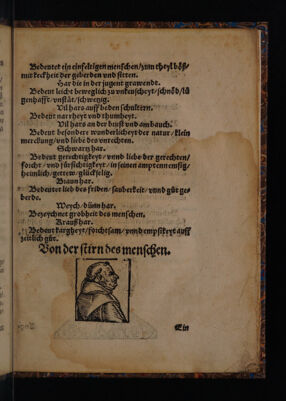 Bedeutet ein einfeltigen menschen/zum theyl böß/
mit keckheit der geberden vnd sitten.
Har die in der jugent grawende.
Bedeut leicht beweglich zu vnkeuscheyt/schnöd/lü
genhafft/vnstät/schwetzig.
Vil hars auff beden schultern.
Bedeut narrheyt vnd thumheyt.
Vil hars an der brust vnd am bauch.
Bedeut besonder wunderlicheyt der natur/klein
merckung/vnd liebe des vnrechten.
Schwartz har.
Bedeut gerechtigkeyt/vnnd liebe der gerechten/
forcht vnd fürsichtigkeyt/in seinen ampten emsig/
heimlich/getrew/glückselig.
Braun har.
Bedeutet lieb des friden/sauberkeit/vnnd güt ge-
berde.
Weych/dünn har.
Bezeychnet grobheit des menschen.
Krauß har.
Bedeut kargheyt/forchtsam/vnnd empsikeyt auff
zeitlich gůt.
Von der stirn des menschen.
Ein